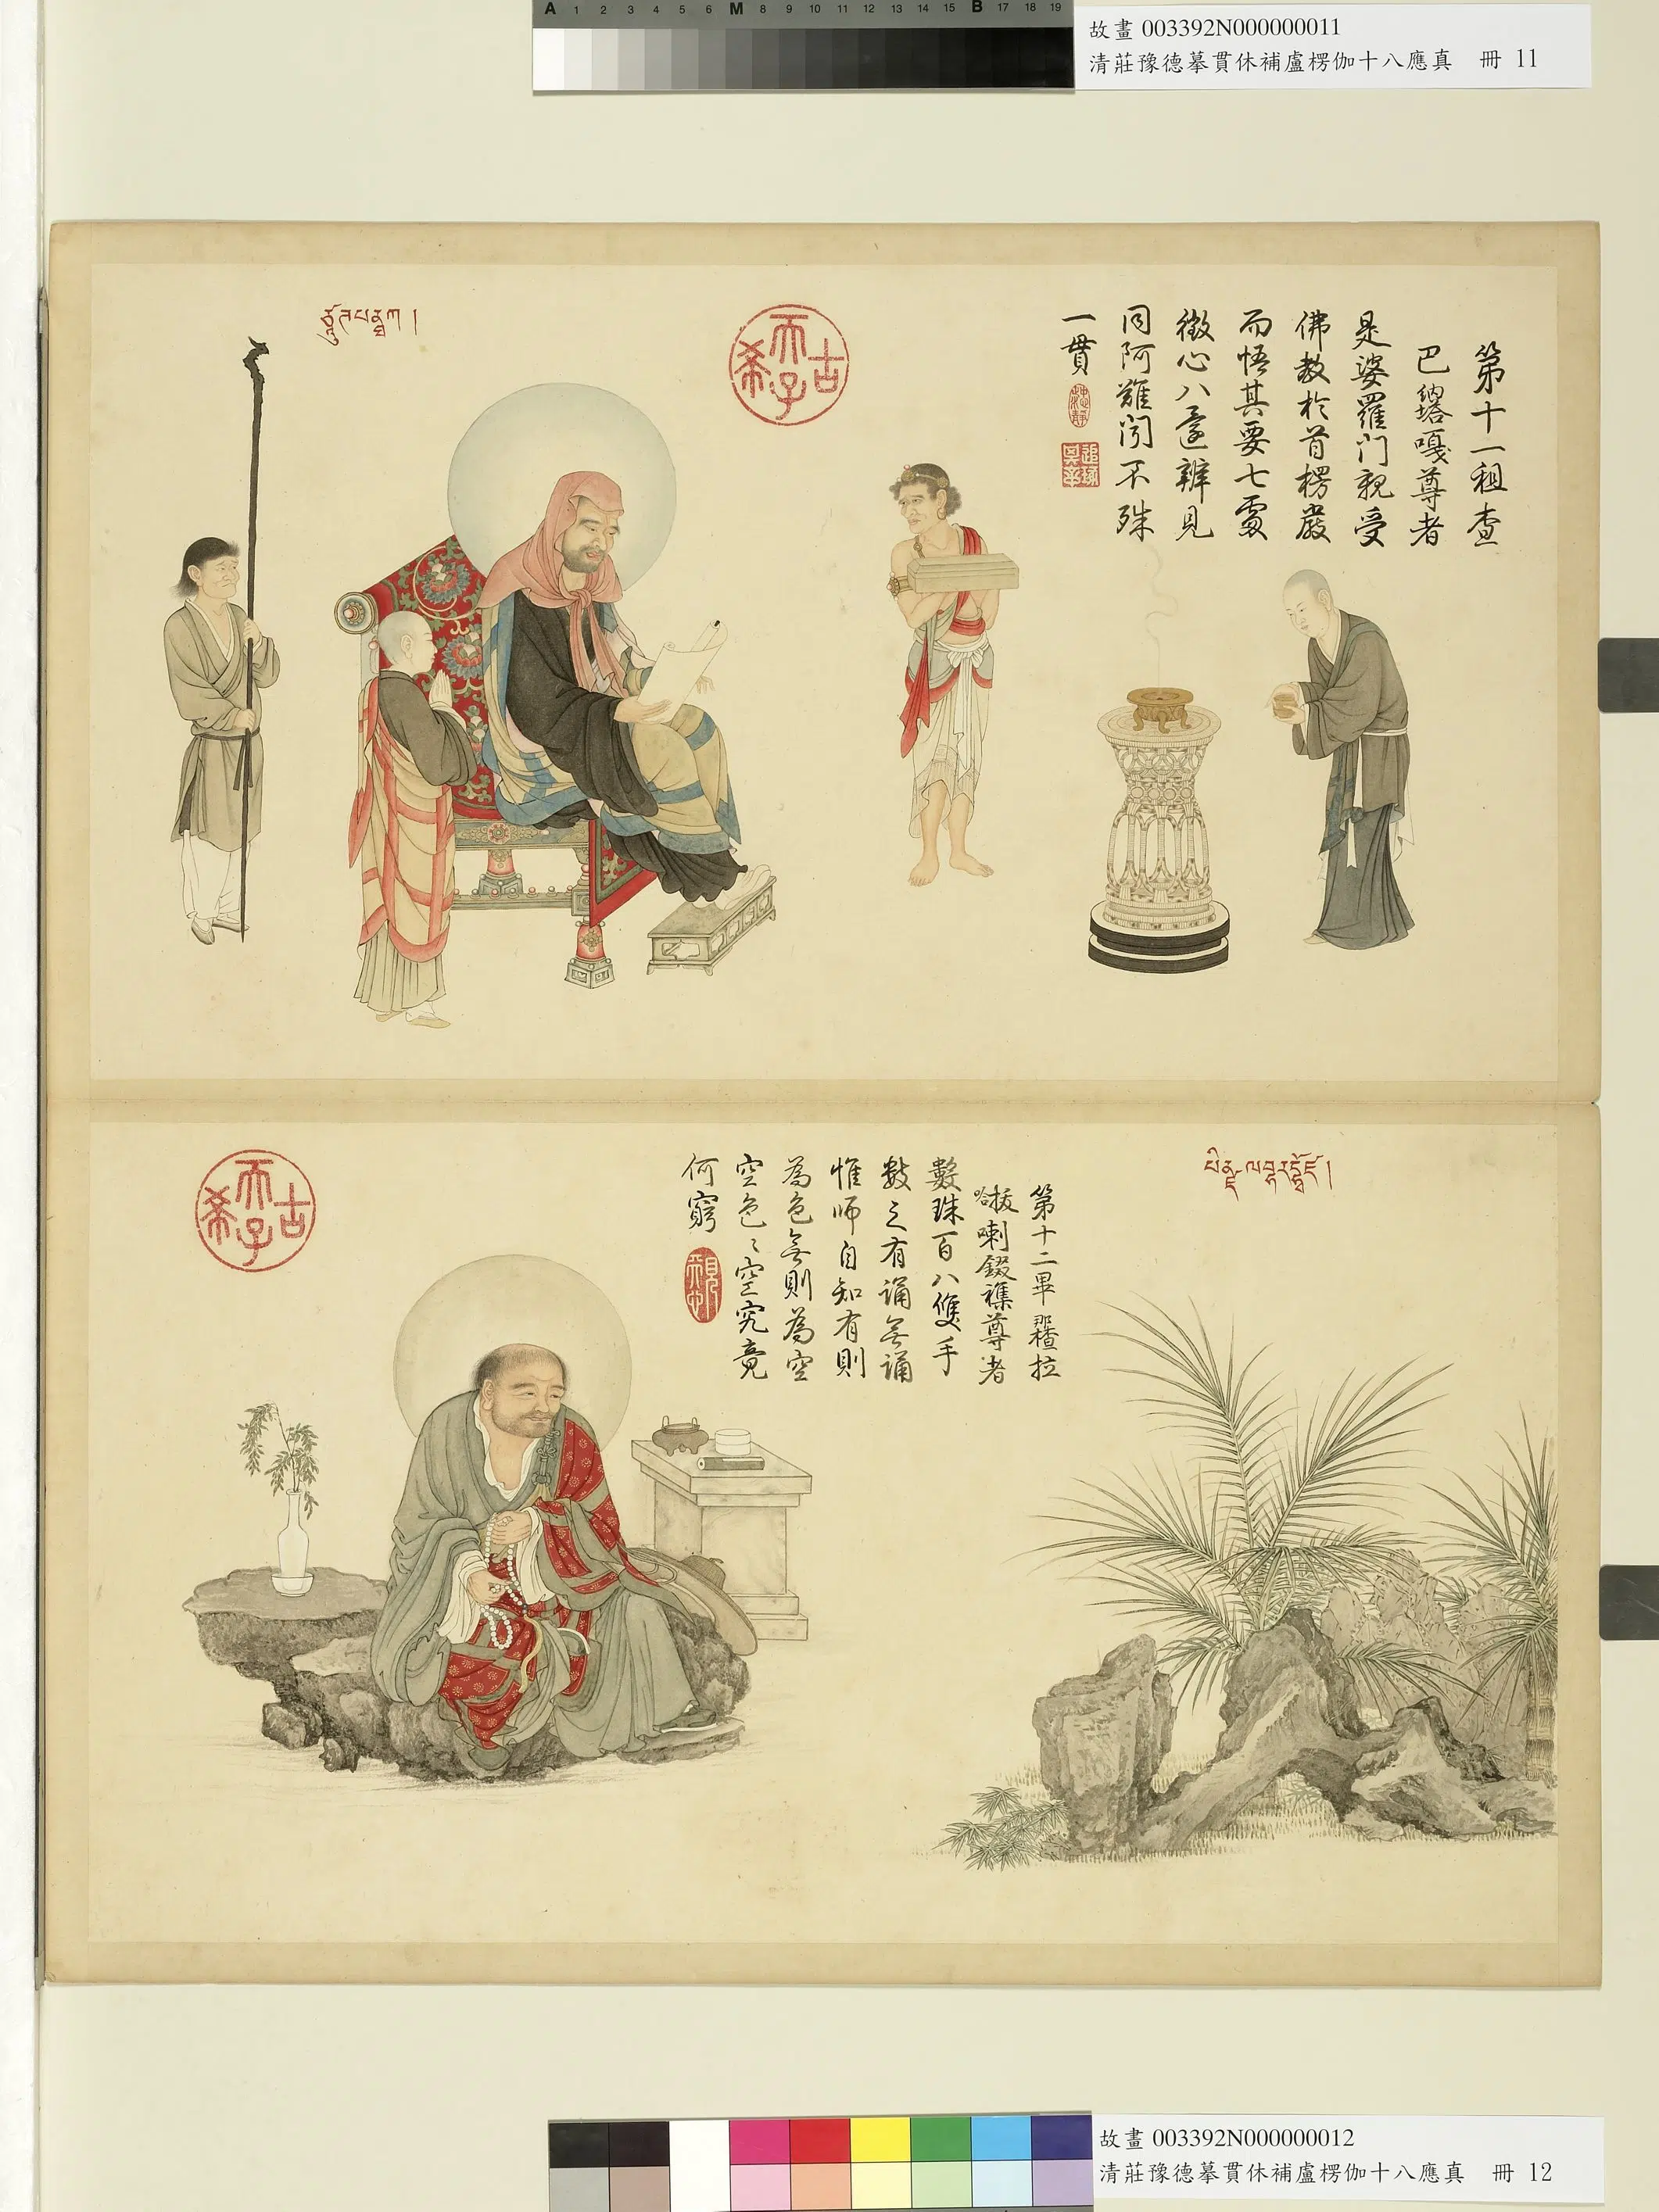 A 1 2 3 4 5 6 M 8 9 10 11 12 13 14 15 B 17 18 19
故畫 003392N000000011
清莊豫德摹貫休補盧楞伽十八應真 冊 11
第十一租查
巴納塔嘎尊者
是婆羅門親受
佛教於首楞嚴
而悟其要七處
徵心八還辨見
同阿難聞不殊
一貫
古希天子
第十二畢那楂拉
哈拔喇錣襍尊者
數珠百八雙手
數之有誦無誦
惟師自知有則
為色無則為空
空色〻空究竟
何窮
古希天子
故畫 003392N000000012
清莊豫德摹貫休補盧楞伽十八應真 冊 12